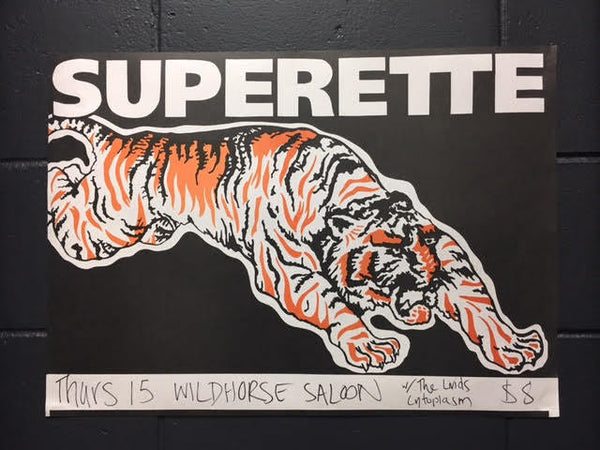 SUPERETTE
Thurs 15 WILDHORSE SALOON w/ The Lords $8
Entoplasm